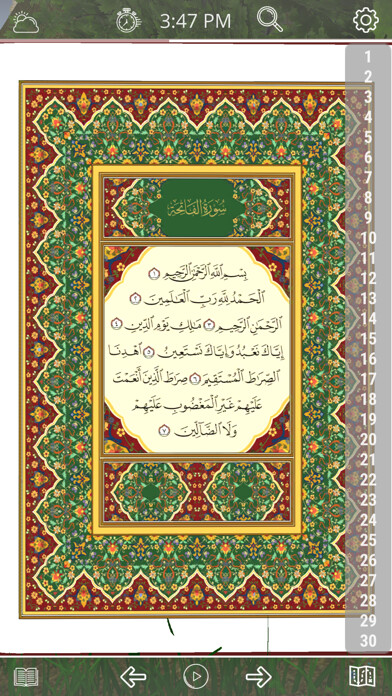 3:47 PM
سُورَةُ الفَاتِحَة
بِسْمِ اللَّهِ الرَّحْمَٰنِ الرَّحِيمِ ١
الْحَمْدُ لِلَّهِ رَبِّ الْعَالَمِينَ ٢
الرَّحْمَٰنِ الرَّحِيمِ ٣ مَالِكِ يَوْمِ الدِّينِ ٤
إِيَّاكَ نَعْبُدُ وَإِيَّاكَ نَسْتَعِينُ ٥ اهْدِنَا
الصِّرَاطَ الْمُسْتَقِيمَ ٦ صِرَاطَ الَّذِينَ أَنْعَمْتَ
عَلَيْهِمْ غَيْرِ الْمَغْضُوبِ عَلَيْهِمْ
وَلَا الضَّالِّينَ ٧
1
2
3
4
5
6
7
8
9
10
11
12
13
14
15
16
17
18
19
20
21
22
23
24
25
26
27
28
29
30